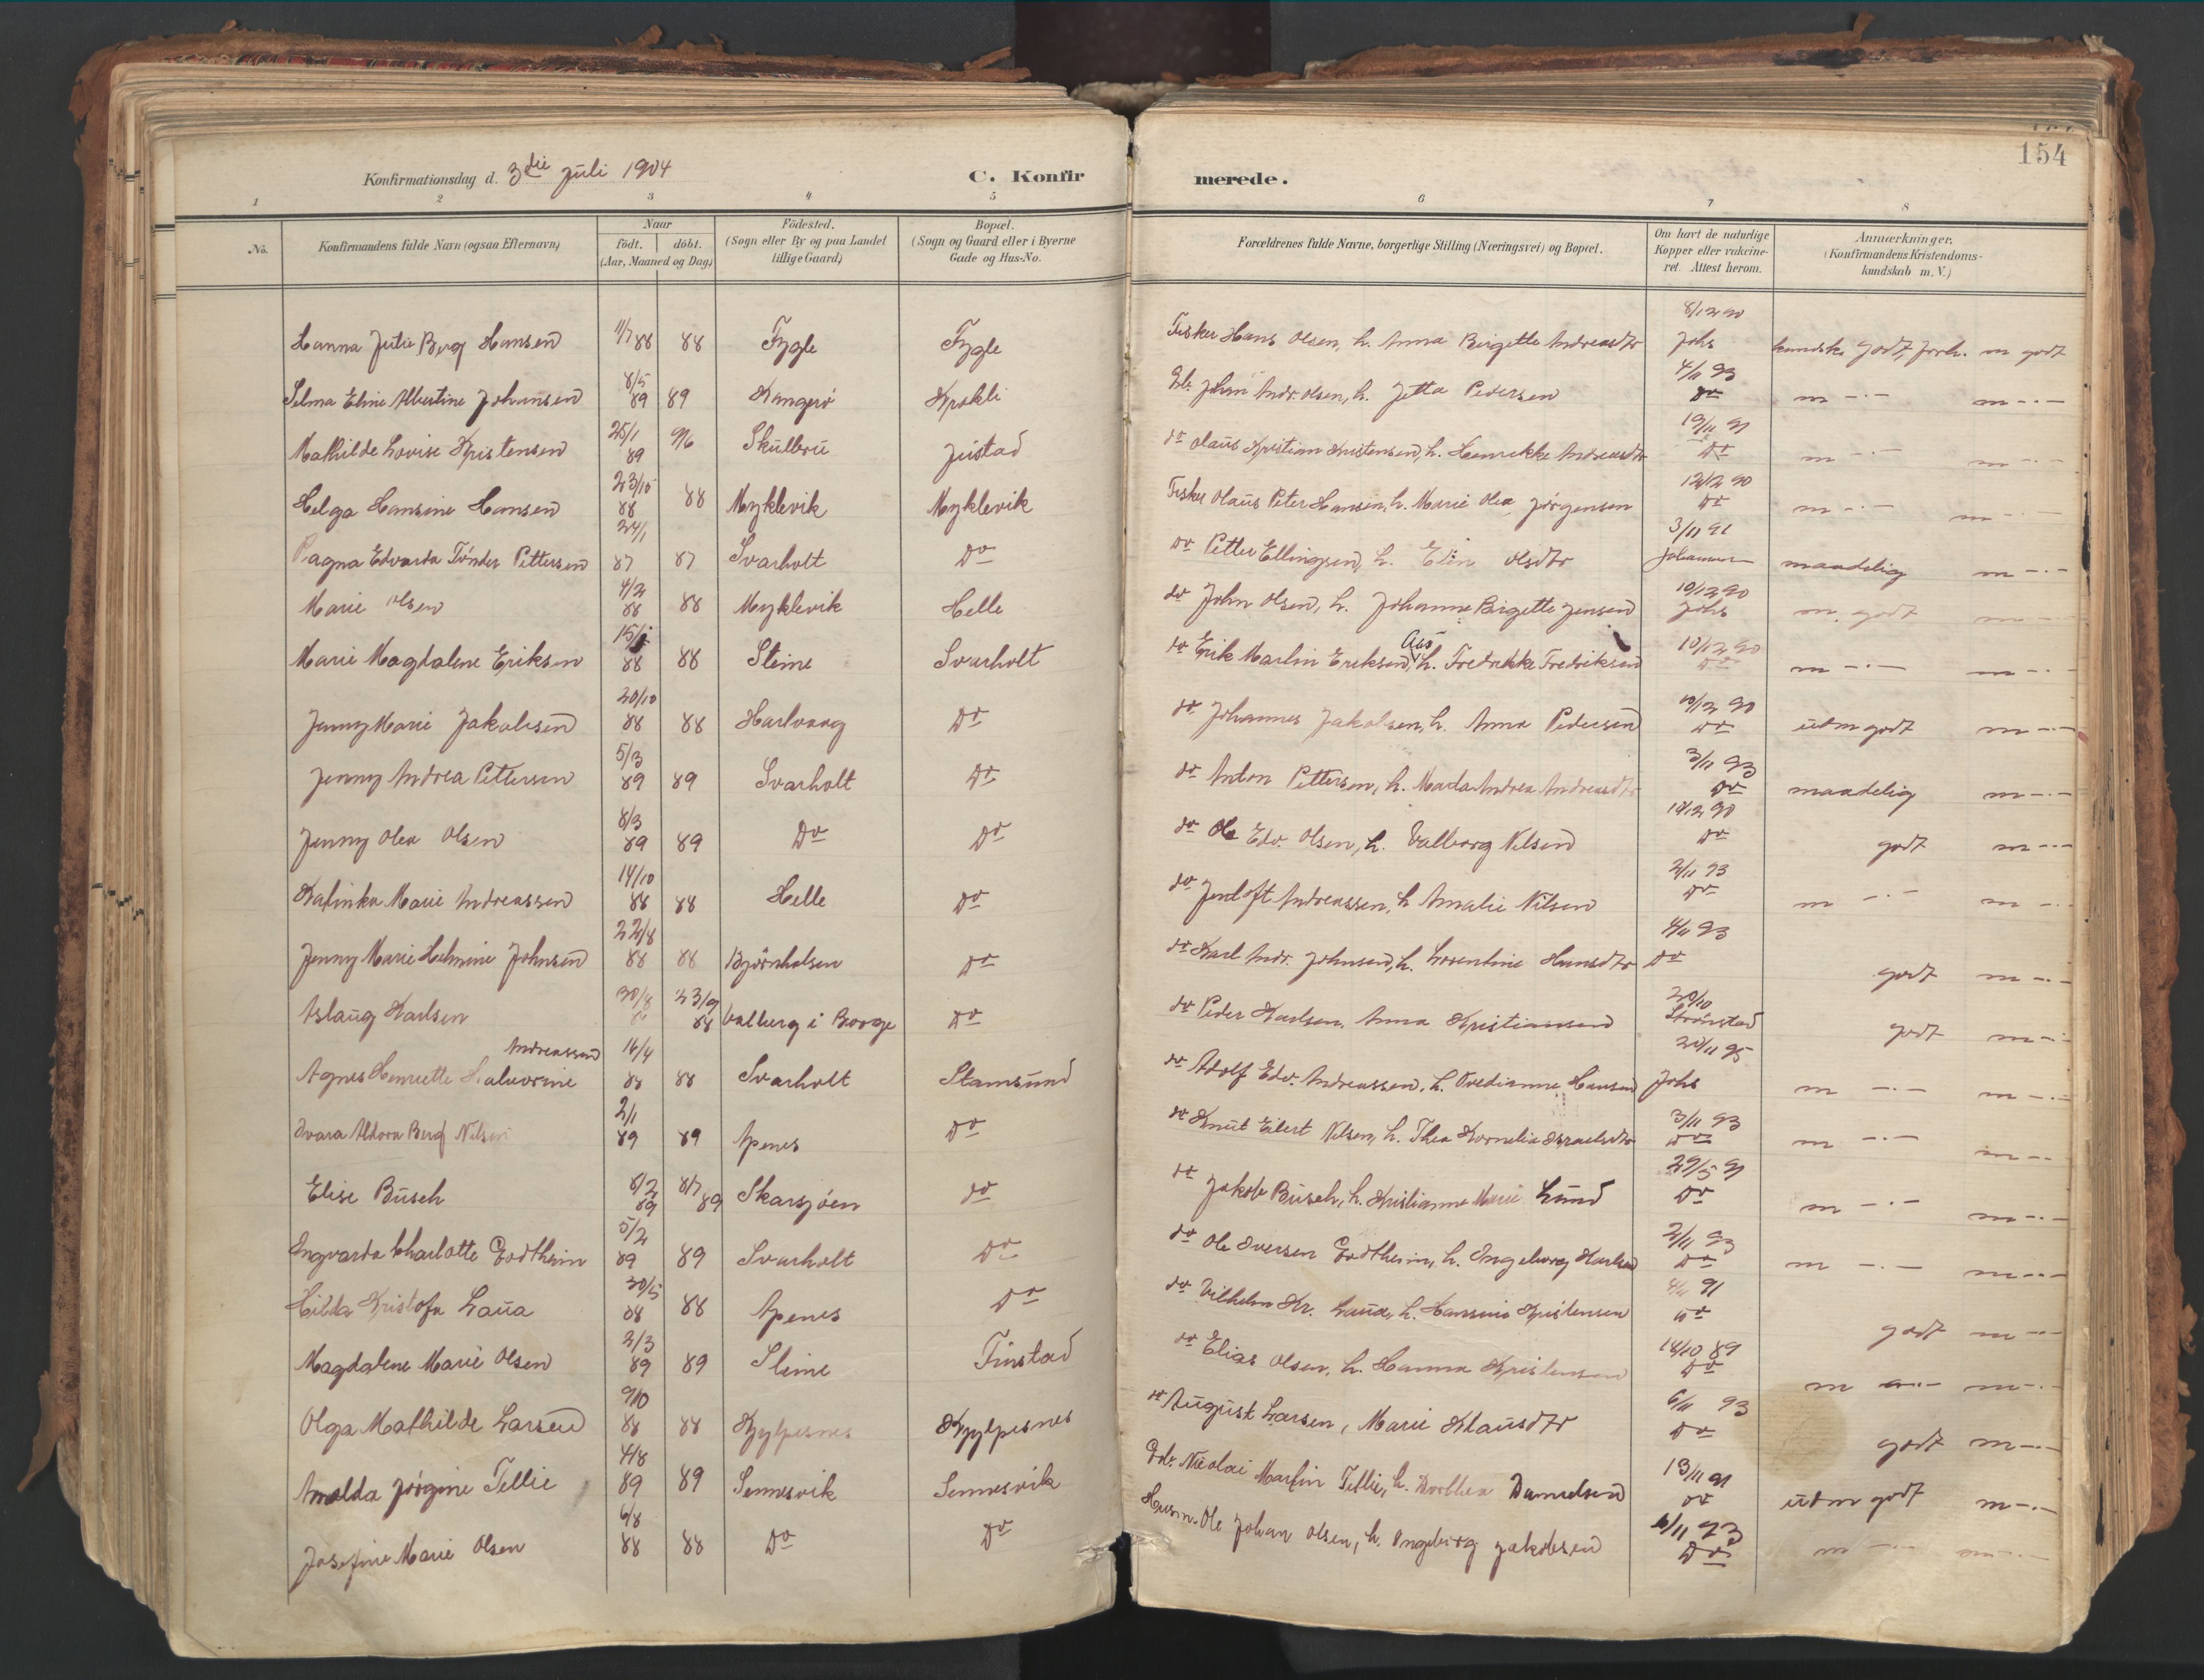 154
Konfirmationsdag d. 3die Juli 1904 C. Konfir merede.
1 2 3 4 5 6 7 8
No. Konfirmandens fulde Navn (ogsaa Efternavn) Naar födt. döbt. (Aar, Maaned og Dag) Födested. (Sogn eller By og paa Landet tillige Gaard) Bopæl. (Sogn og Gaard eller i Byerne Gade og Hus-No. Forældrenes fulde Navne, borgerlige Stilling (Næringsvei) og Bopæl. Om havt de naturlige Kopper eller vakcineret. Attest herom. Anmærkninger. (Konfirmandens Kristendomskundskab m. V.)
Hanna Julie Berg Hansen 11/7 88 88 Fygle Fygle Fisker Hans Olsen, h. Anna Birgette Andreasdtr 8/12 90 Johs kundsk. godt, forh. m godt
Selma Eline Albertine Johansen 8/5 89 89 Kangerö Krokli Johan Andr. Olsen, h. Jetta Pedersen 4/11 93 do m -.- m -.-
Mathilde Lovise Kristensen 25/1 89 9/6 Skulbru Justad do Olaus Kristian Kristensen, h. Henrikke Andreasdtr 19/11 91 Do m -.- m -.-
Helga Hansine Hansen 23/10 88 88 Myklevik Myklevik Fisker Olaus Peter Hansen, h. Marie Olea Jörgensen 12/12 90 Do m -.- m -.-
Ragna Edvarda Tönder Pettersen 24/1 87 87 Svarholt Do Do Petter Ellingsen, h. Elen Olsdtr 3/11 91 maadelig m -.-
Marie Olsen 4/2 88 88 Myklevik Helle do John Olsen, h. Johanne Birgette Jensen 10/12 90 Johs m. godt m -.-
Marie Magdalene Eriksen 15/1 88 88 Steine Svarholt do Erik Martin Eriksen, h. Fredrikke Fredriksen 10/12 90 Do m -.- m -.-
Jenny Marie Jakobsen 20/10 88 88 Hartvaag Do do Johannes Jakobsen, h. Anna Pedersen 10/12 90 Do utm godt m -.-
Jenny Andrea Pettersen 5/3 89 89 Svarholt Do do Anton Pettersen, h. Marta Andrea Andreasdtr 3/11 93 Do maadelig m -.-
Jenny Olea Olsen 8/3 89 89 Do Do do Ole Edv. Olsen, h. Valborg Nilsen 10/12 90 Do godt m -.-
Katinka Marie Andreassen 14/10 88 88 Helle Do do Jentoft Andreassen, h Amalie Nilsen 2/11 93 Do m -.- m -.-
Jenny Marie Helmine Johnsen 22/8 88 88 Björnholsen Do do Karl Andr. Johnsen, h. Lorentine Hansdtr 4/11 93 Do godt m -.-
Aslaug Karlsen 30/8 88 23/9 88 Valberg i Borge Do do Peder Karlsen, Anna Kristiansen 20/10 Strönstad godt m -.-
Andreassen
Agnes Henriette Halvorine 16/4 88 88 Svarholt Stamsund do Adolf Edv. Andreassen, h. Ovedianne Hansen 20/11 95 Johs m -.- m -.-
Ivara Aldora Berg Nilsen 2/1 89 89 Apenes Do do Knut Eilert Nilsen, h. Thea Kornelia Israelsdtr 3/11 93 Do m -.- m -.-
Elise Busch 8/2 89 8/7 89 Skarsjöen do do Jakob Busch, h. Kristianne Marie Lund 29/5 91 Do m -.- m -.-
Ingvarda Charlotte Godtheim 5/2 89 89 Svarholt Do do Ole Iversen Godtheim, h. Ingeborg Karlsen 2/11 93 Do m -.- m -.-
Hilda Kristofa Laua 30/5 88 88 Apenes Do do Vilhelm Kr. Laua, h. Hansine Kristensen 4/11 91 Do godt m -.-
Magdalene Marie Olsen 2/3 89 89 Steine Finstad do Elias Olsen, h. Hanna Kristensen 14/10 89 Do m -.- m -.-
Olga Mathilde Larsen 9/10 88 88 Kylpesnes Kylpesnes do August Larsen, Marie Klausdtr 6/11 93 Do godt m -.-
Amalda Jörgine Tellie 4/8 89 89 Sennesvik Sennesvik Gdbr. Nicolai Martin Tellie, h. Dorthea Danielsen 13/11 91 Do utm godt m -.-
Josefine Marie Olsen 6/8 88 88 Do Do Husm. Ole Johan Olsen, h. Ingeborg Jakobsen 6/11 93 Do m -.- m -.-